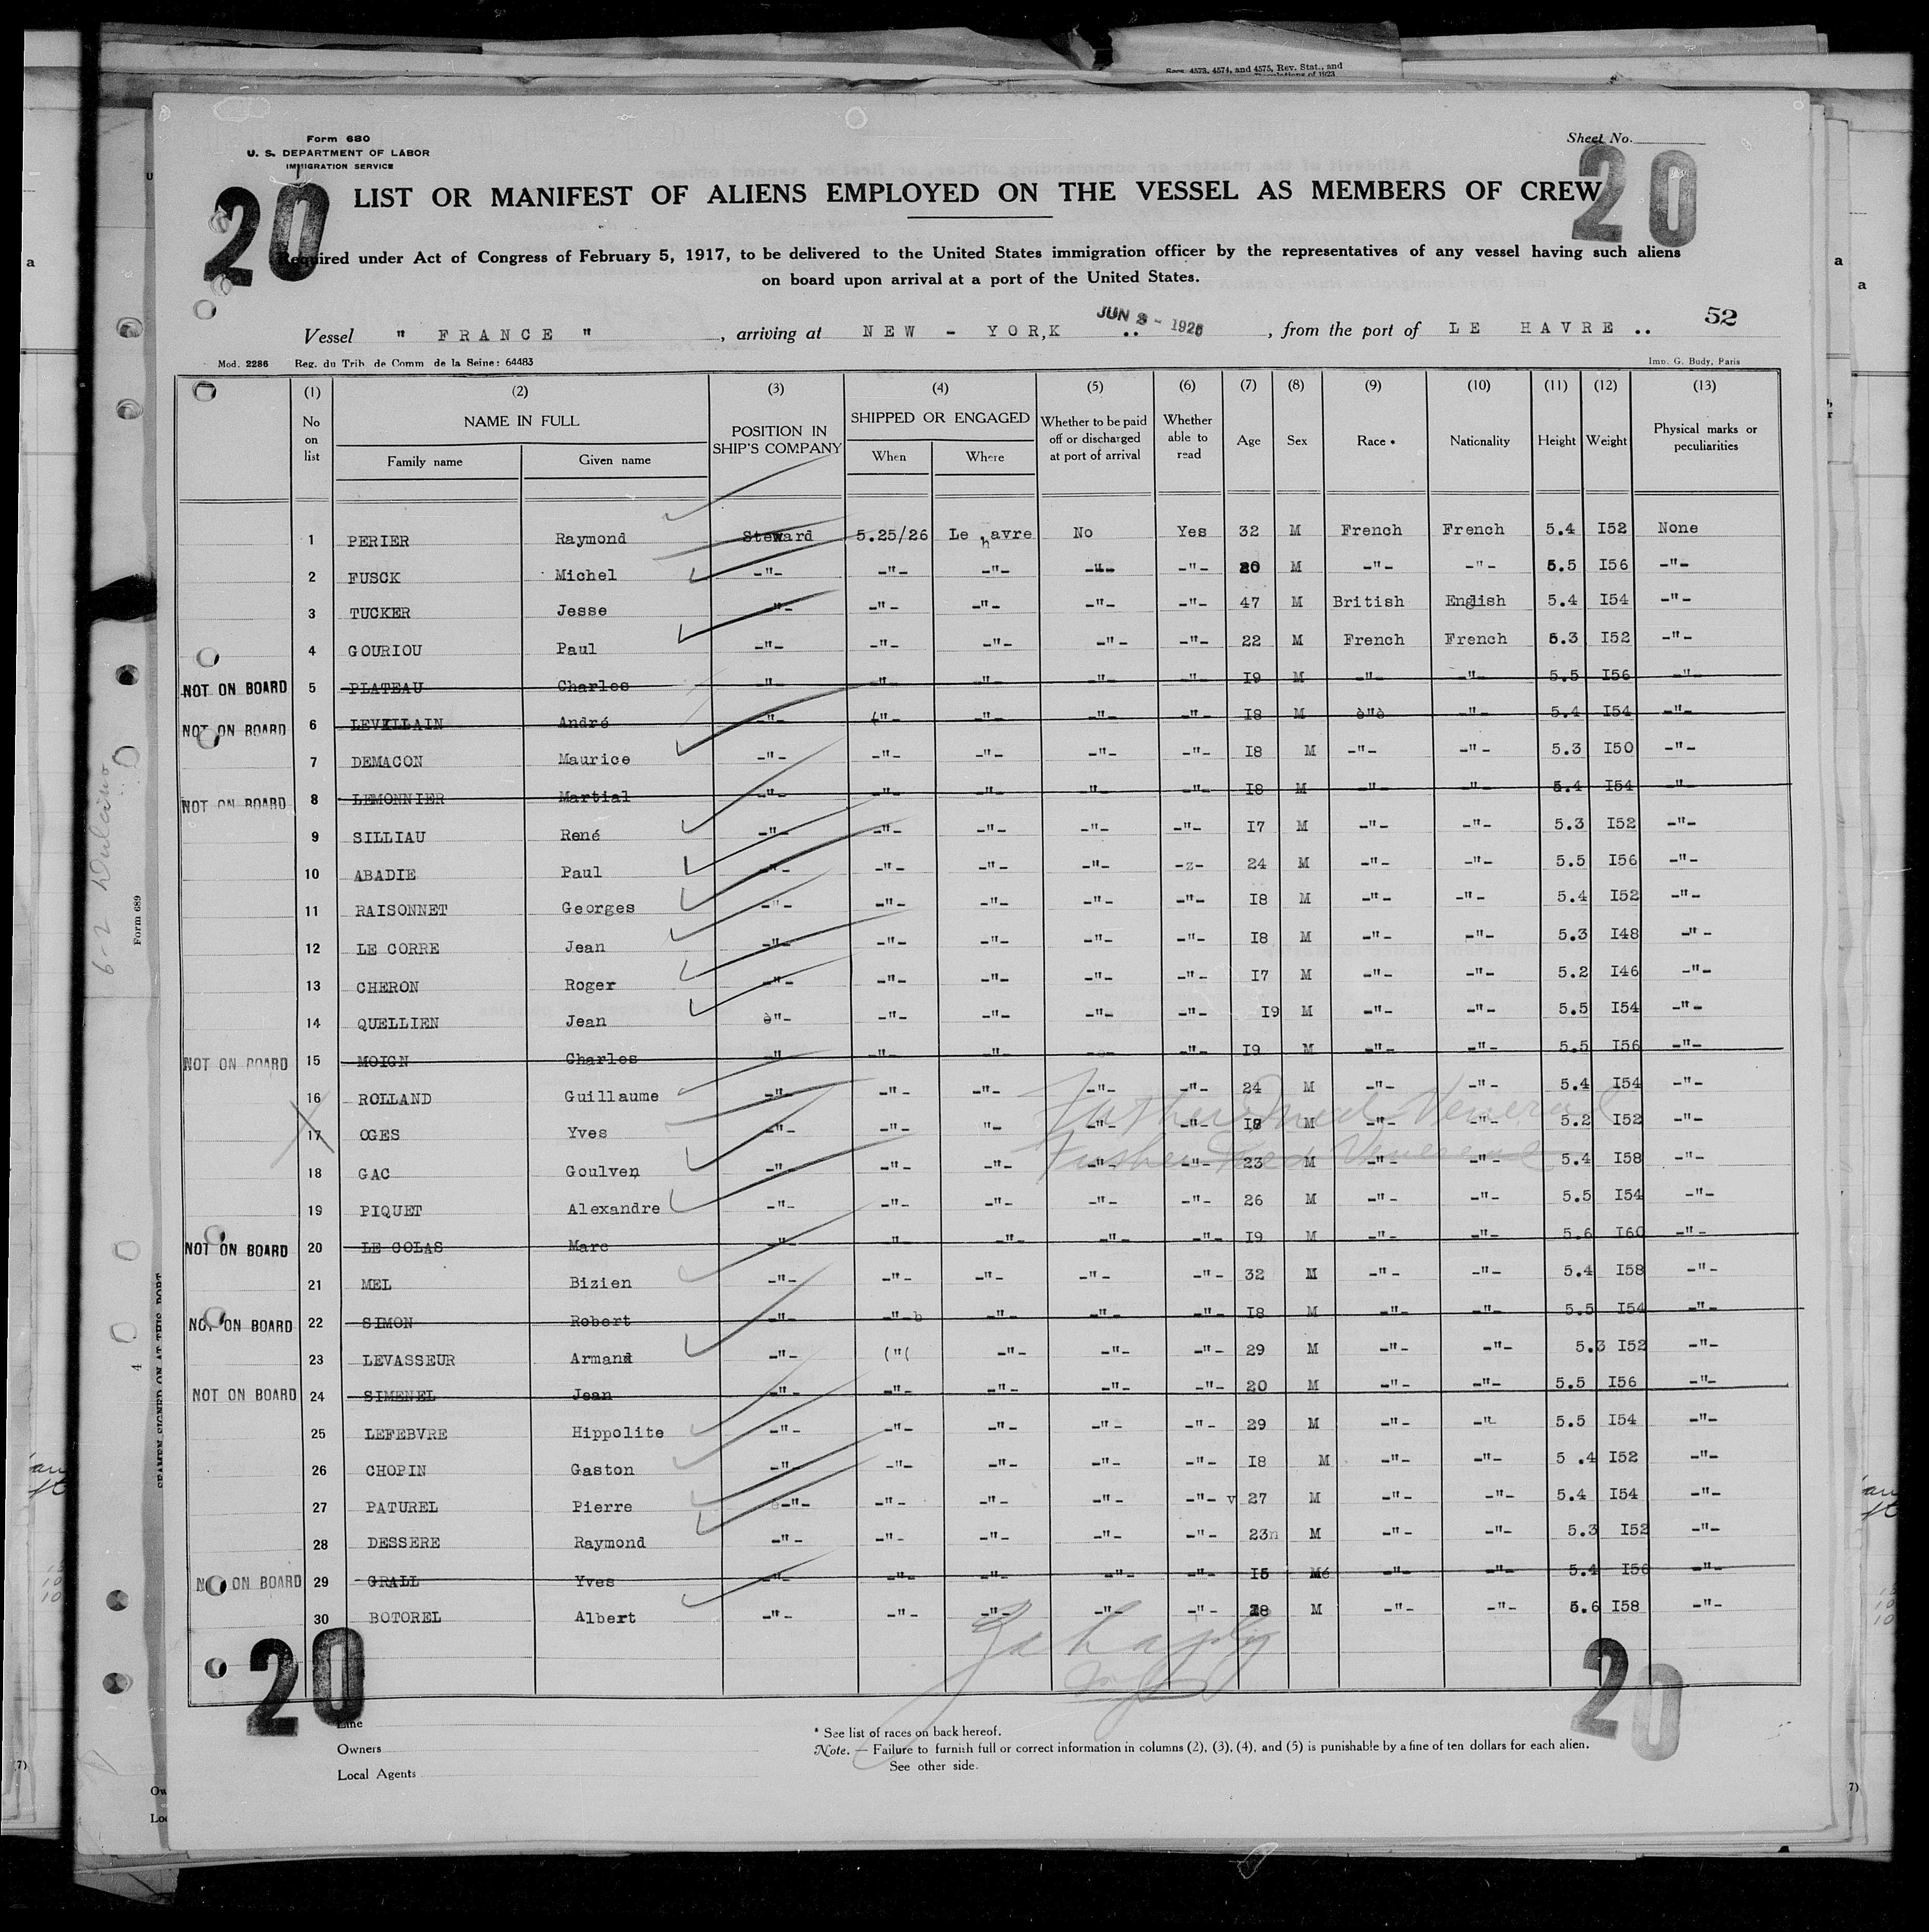 Secs. 4573, 4574, and 4575, Rev. Stat., and
Form 680
U. S. DEPARTMENT OF LABOR
IMMIGRATION SERVICE
Sheet No.
20 20
LIST OR MANIFEST OF ALIENS EMPLOYED ON THE VESSEL AS MEMBERS OF CREW
Required under Act of Congress of February 5, 1917, to be delivered to the United States immigration officer by the representatives of any vessel having such aliens
on board upon arrival at a port of the United States.
52
Vessel " FRANCE " , arriving at NEW - YORK .. JUN - 1926 , from the port of LE HAVRE ..
Mod. 2286 Reg. du Trib. de Comm de la Seine: 64483 Imp. G. Budy, Paris
(1) (2) (3) (4) (5) (6) (7) (8) (9) (10) (11) (12) (13)
No on list NAME IN FULL POSITION IN SHIP'S COMPANY SHIPPED OR ENGAGED Whether to be paid off or discharged at port of arrival Whether able to read Age Sex Race * Nationality Height Weight Physical marks or peculiarities
Family name Given name When Where
1 PERIER Raymond Steward 5.25/26 Le havre No Yes 32 M French French 5.4 I52 None
2 FUSCK Michel -"- -"- -"- -"- -"- 20 M -"- -"- 5.5 I56 -"-
3 TUCKER Jesse -"- -"- -"- -"- -"- 47 M British English 5.4 I54 -"-
4 GOURIOU Paul -"- -"- -"- -"- -"- 22 M French French 5.3 I52 -"-
NOT ON BOARD 5 PLATEAU Charles -"- -"- -"- -"- -"- I9 M -"- -"- 5.5 I56 -"-
NOT ON BOARD 6 LEVILLAIN André -"- ("- -"- -"- -"- I8 M è"è -"- 5.4 I54 -"-
7 DEMACON Maurice -"- -"- -"- -"- -"- I8 M -"- -"- 5.3 I50 -"-
NOT ON BOARD 8 LEMONNIER Martial -"- -"- -"- -"- -"- I8 M -"- -"- 5.4 I54 -"-
9 SILLIAU René -"- -"- -"- -"- -"- I7 M -"- -"- 5.3 I52 -"-
10 ABADIE Paul -"- -"- -"- -"- -z- 24 M -"- -"- 5.5 I56 -"-
11 RAISONNET Georges -"- -"- -"- -"- -"- I8 M -"- -"- 5.4 I52 -"-
12 LE CORRE Jean -"- -"- -"- -"- -"- I8 M -"- -"- 5.3 I48 -"-
13 CHERON Roger -"- -"- -"- -"- -"- I7 M -"- -"- 5.2 I46 -"-
14 QUELLIEN Jean è"- -"- -"- -"- -"- I9 M -"- -"- 5.5 I54 -"-
NOT ON BOARD 15 MOIGN Charles -"- -"- -"- -"- -"- I9 M -"- -"- 5.5 I56 -"-
16 ROLLAND Guillaume -"- -"- -"- -"- -"- 24 M -"- -"- 5.4 I54 -"-
17 OGES Yves -"- -"- "- -"- -"- I8 M -"- -"- 5.2 I52 -"-
18 GAC Goulven -"- -"- -"- -"- -"- 23 M -"- -"- 5.4 I58 -"-
19 PIQUET Alexandre -"- -"- -"- -"- -"- 26 M -"- -"- 5.5 I54 -"-
NOT ON BOARD 20 LE COLAS Marc -"- " -"- -"- -"- I9 M -"- -"- 5.6 I60 -"-
21 MEL Bizien -"- -"- -"- -"- -"- 32 M -"- -"- 5.4 I58 -"-
NOT ON BOARD 22 SIMON Robert -"- -"-b -"- -"- -"- I8 M -"- -"- 5.5 I54 -"-
23 LEVASSEUR Armand -"- ("( -"- -"- -"- 29 M -"- -"- 5.3 I52 -"-
NOT ON BOARD 24 SIMENEL Jean -"- -"- -"- -"- -"- 20 M -"- -"- 5.5 I56 -"-
25 LEFEBVRE Hippolite -"- -"- -"- -"- -"- 29 M -"- -"- 5.5 I54 -"-
26 CHOPIN Gaston -"- -"- -"- -"- -"- I8 M -"- -"- 5 .4 I52 -"-
27 PATUREL Pierre -"- -"- -"- -"- -"- v 27 M -"- -"- 5.4 I54 -"-
28 DESSERE Raymond -"- -"- -"- -"- -"- 23n M -"- -"- 5.3 I52 -"-
NOT ON BOARD 29 GRALL Yves -"- -"- -"- -"- -"- I5 Mé -"- -"- 5.4 I56 -"-
30 BOTOREL Albert -"- -"- -"- -"- -"- 28 M -"- -"- 5.6 I58 -"-
20 20
Line
Owners
Local Agents
* See list of races on back hereof.
Note. — Failure to furnish full or correct information in columns (2), (3), (4), and (5) is punishable by a fine of ten dollars for each alien.
See other side.
Form 689